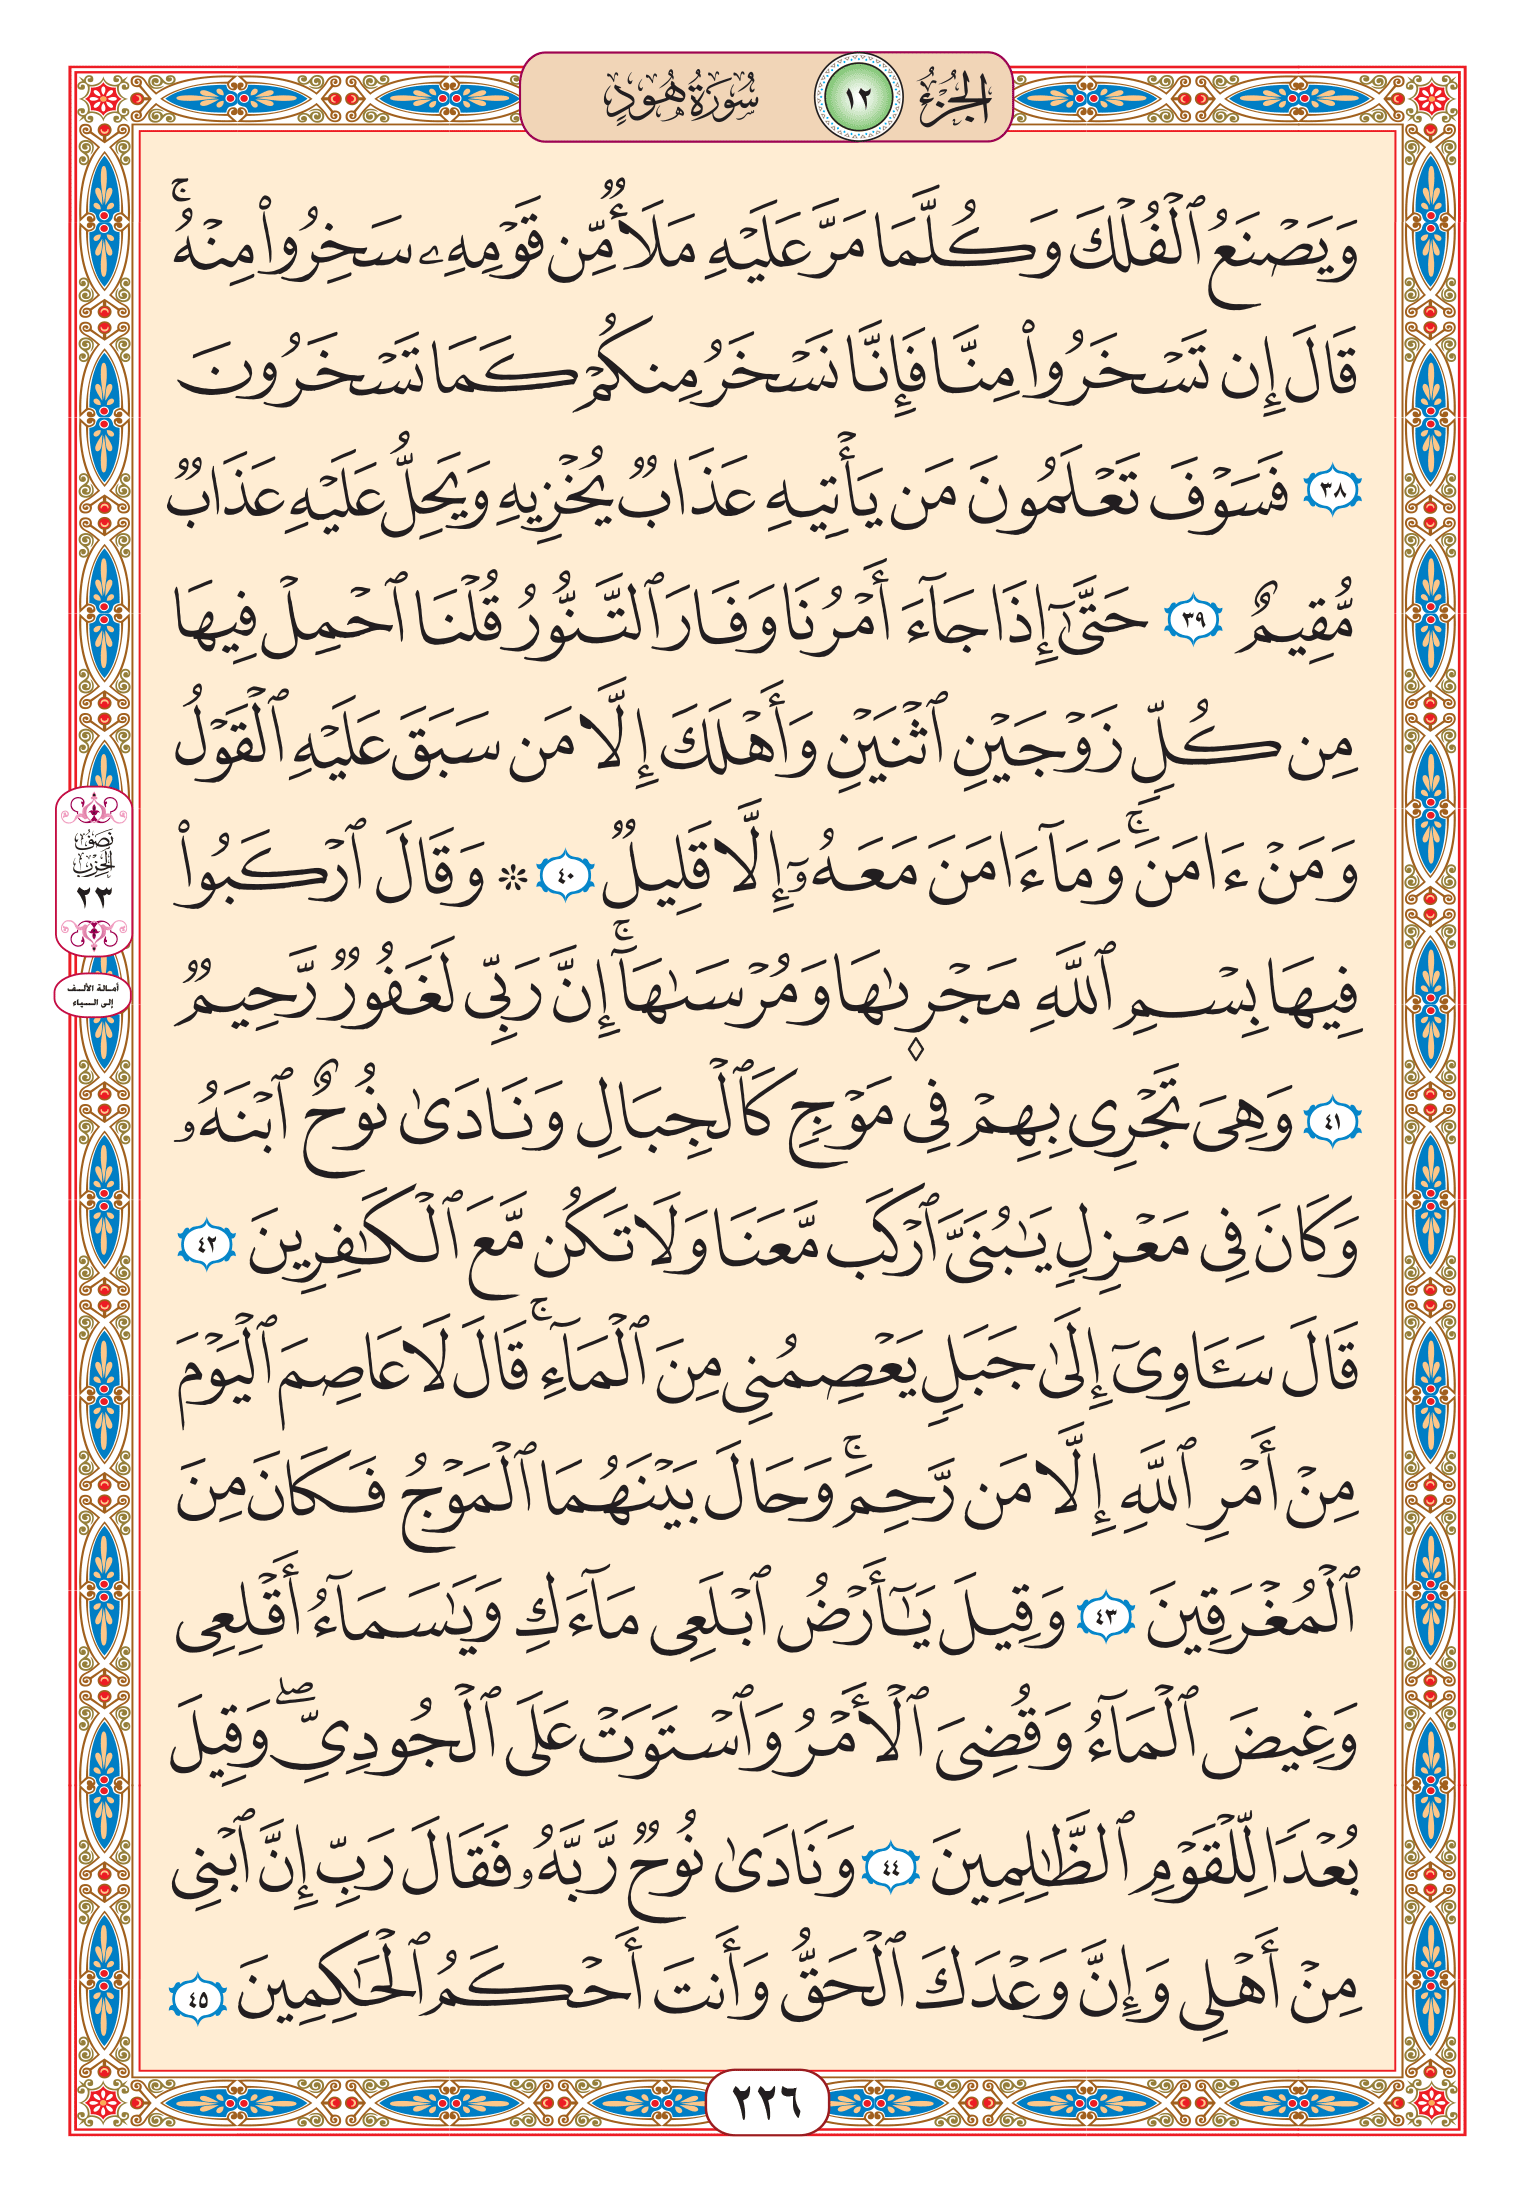 الجُزْءُ ١٢ سُورَةُ هُودٍ
وَيَصْنَعُ ٱلْفُلْكَ وَكُلَّمَا مَرَّ عَلَيْهِ مَلَأٌ مِّن قَوْمِهِۦ سَخِرُوا۟ مِنْهُ ۚ
قَالَ إِن تَسْخَرُوا۟ مِنَّا فَإِنَّا نَسْخَرُ مِنكُمْ كَمَا تَسْخَرُونَ
٣٨ فَسَوْفَ تَعْلَمُونَ مَن يَأْتِيهِ عَذَابٌ يُخْزِيهِ وَيَحِلُّ عَلَيْهِ عَذَابٌ
مُّقِيمٌ ٣٩ حَتَّىٰٓ إِذَا جَآءَ أَمْرُنَا وَفَارَ ٱلتَّنُّورُ قُلْنَا ٱحْمِلْ فِيهَا
مِن كُلٍّ زَوْجَيْنِ ٱثْنَيْنِ وَأَهْلَكَ إِلَّا مَن سَبَقَ عَلَيْهِ ٱلْقَوْلُ
وَمَنْ ءَامَنَ ۚ وَمَآ ءَامَنَ مَعَهُۥٓ إِلَّا قَلِيلٌ ٤٠ ۞ وَقَالَ ٱرْكَبُوا۟
فِيهَا بِسْمِ ٱللَّهِ مَجْر۪ىٰهَا وَمُرْسَىٰهَآ ۚ إِنَّ رَبِّى لَغَفُورٌ رَّحِيمٌ
٤١ وَهِىَ تَجْرِى بِهِمْ فِى مَوْجٍ كَٱلْجِبَالِ وَنَادَىٰ نُوحٌ ٱبْنَهُۥ
وَكَانَ فِى مَعْزِلٍ يَٰبُنَىَّ ٱرْكَب مَّعَنَا وَلَا تَكُن مَّعَ ٱلْكَٰفِرِينَ ٤٢
قَالَ سَـَٔاوِىٓ إِلَىٰ جَبَلٍ يَعْصِمُنِى مِنَ ٱلْمَآءِ ۚ قَالَ لَا عَاصِمَ ٱلْيَوْمَ
مِنْ أَمْرِ ٱللَّهِ إِلَّا مَن رَّحِمَ ۚ وَحَالَ بَيْنَهُمَا ٱلْمَوْجُ فَكَانَ مِنَ
ٱلْمُغْرَقِينَ ٤٣ وَقِيلَ يَٰٓأَرْضُ ٱبْلَعِى مَآءَكِ وَيَٰسَمَآءُ أَقْلِعِى
وَغِيضَ ٱلْمَآءُ وَقُضِىَ ٱلْأَمْرُ وَٱسْتَوَتْ عَلَى ٱلْجُودِىِّ ۖ وَقِيلَ
بُعْدًا لِّلْقَوْمِ ٱلظَّٰلِمِينَ ٤٤ وَنَادَىٰ نُوحٌ رَّبَّهُۥ فَقَالَ رَبِّ إِنَّ ٱبْنِى
مِنْ أَهْلِى وَإِنَّ وَعْدَكَ ٱلْحَقُّ وَأَنتَ أَحْكَمُ ٱلْحَٰكِمِينَ ٤٥
نصف
الحزب
٢٣
أمالة الألف
إلى السياء
٢٢٦